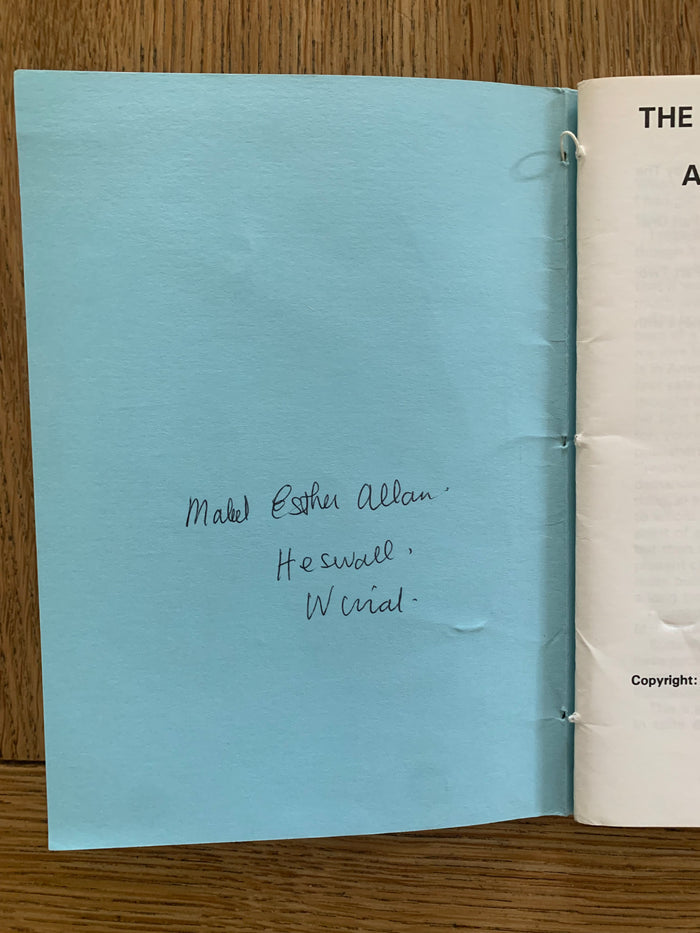 THE
A
Mabel Esther Allan.
Heswall.
Wirral.
Copyright: